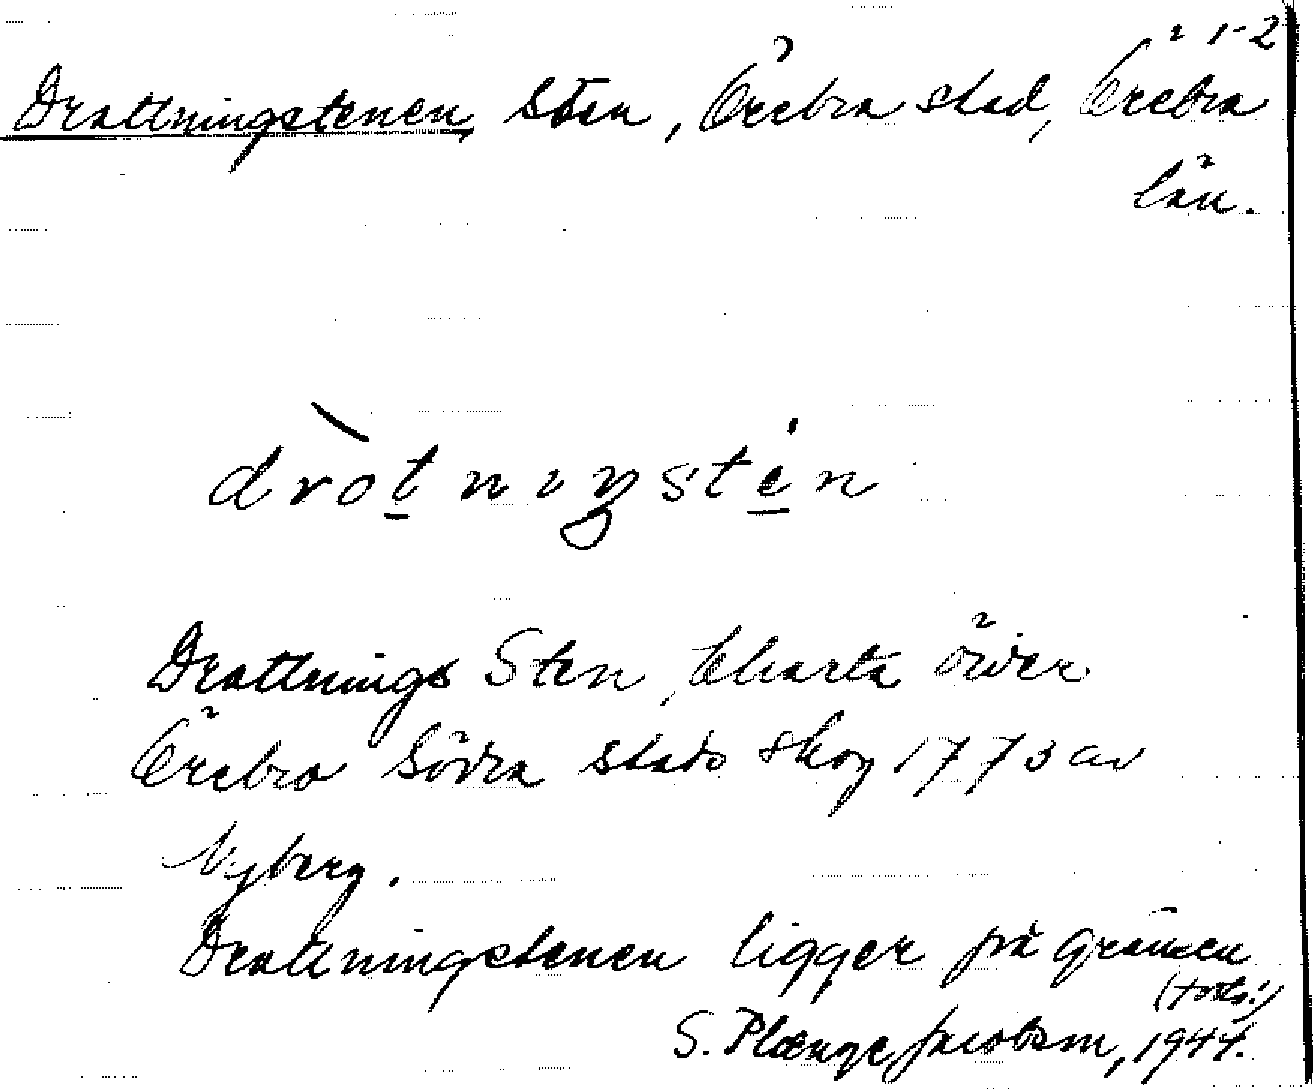 1-2
Drottningstenen, Sten, Örebro stad, Örebro
län.
dròtnıŋsté̱n
Drottnings Sten, Charta öwer
Örebro Södra stads skog 1773 av
Nyberg.
Drottningstenen ligger på gränsen
S. Plænge Jacobson, 1944.